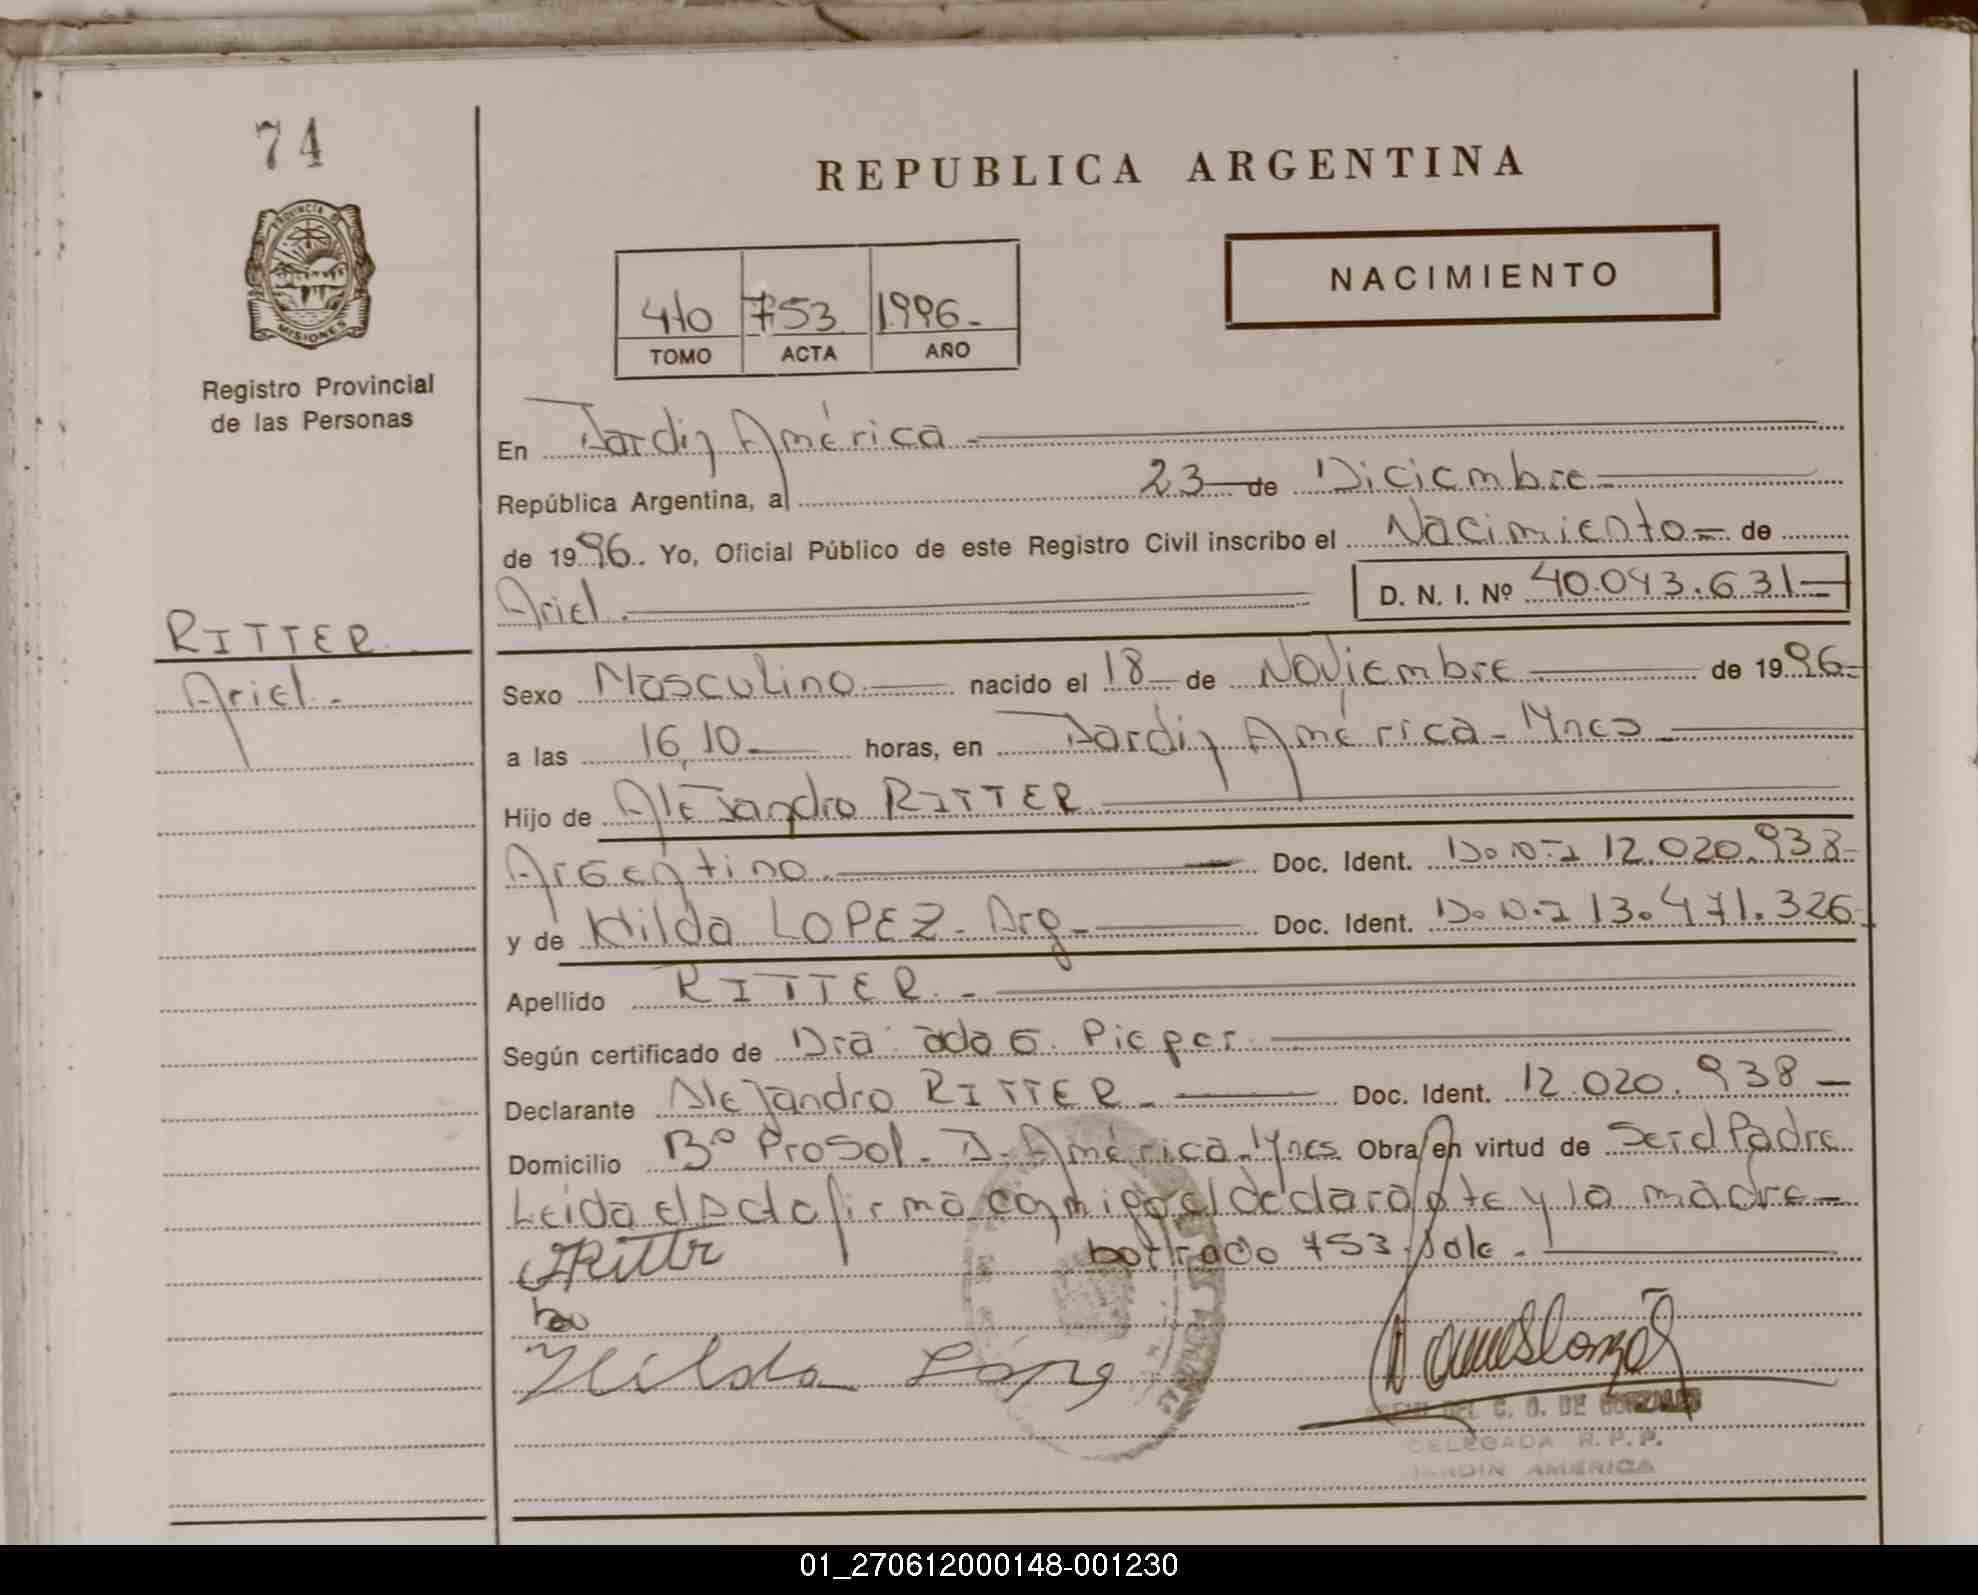 74
REPUBLICA ARGENTINA
PROVINCIA DE
MISIONES
Registro Provincial
de las Personas
NACIMIENTO
4to 753 1996.-
TOMO ACTA AÑO
En Jardin América.-
República Argentina, a 23 de Diciembre-
de 1996. Yo, Oficial Público de este Registro Civil inscribo el Nacimiento de
Ariel. D. N. I. Nº 40.043.631-
RITTER.
Ariel.-
Sexo Masculino. nacido el 18 de Noviembre de 1996-
a las 16,10 horas, en Jardin América - Mnes
Hijo de Alejandro RITTER
Argentino. Doc. Ident. D.N.I 12.020.938-
y de Hilda LOPEZ - Arg. Doc. Ident. D.N.I 13.471.326-
Apellido RITTER.-
Según certificado de Dra: ada G. Pieper.
Declarante Alejandro RITTER.- Doc. Ident. 12.020.938-
Domicilio Bº ProSol - J. América - Mnes Obra en virtud de Ser el Padre
Leida el Acta firma conmigo el declarante y la madre-
borrado 753. Vale.-
Hilda López
C. G. DE GONZALEZ
DELEGADA R. P. P.
JARDIN AMERICA
01_270612000148-001230